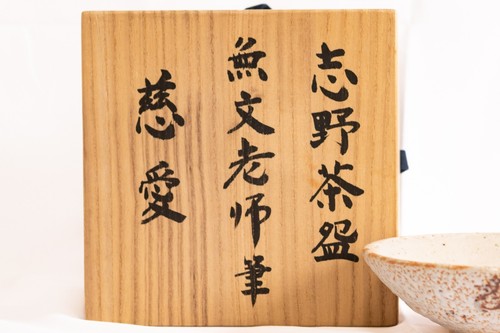 志野茶盌
無文老师筆
慈愛